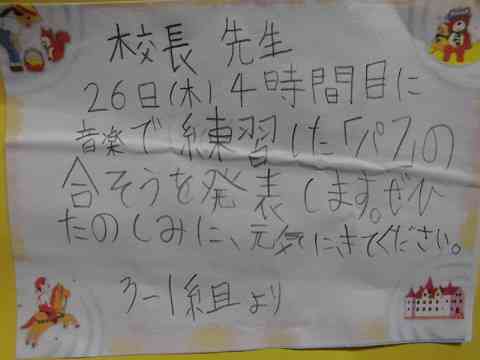 校長 先生
26日(木)4時間目に
音楽で練習した「パフ」の
合そうを発表します。ぜひ
たのしみに、元気にきてください。
3-1組より